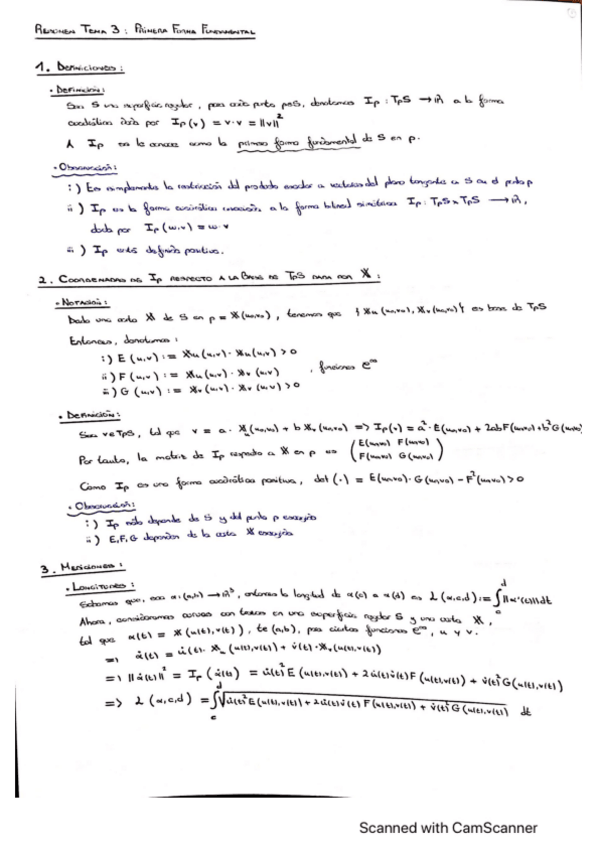 RESUMEN TEMA 3: PRIMERA FORMA FUNDAMENTAL
1. DEFINICIONES:
• DEFINICIÓN:
Sea S una superficie regular, para cada punto p∈S, denotamos Ip: TpS → ℝ a la forma
cuadrática dada por Ip(v) = v·v = ||v||²
A Ip se le conoce como la primera forma fundamental de S en p.
• OBSERVACIÓN:
i) Es simplemente la restricción del producto escalar a vectores del plano tangente a S en el punto p
ii) Ip es la forma cuadrática asociada a la forma bilineal simétrica Ip: TpS × TpS → ℝ,
dada por Ip(w,v) = w·v
iii) Ip está definida positiva.
2. COORDENADAS DE Ip RESPECTO A LA BASE DE TpS DADA POR X:
• NOTACIÓN:
Dada una carta X de S en p = X(u₀,v₀), tenemos que {Xu(u₀,v₀), Xv(u₀,v₀)} es base de TpS
Entonces, denotamos:
i) E(u,v) := Xu(u,v)·Xu(u,v) > 0
ii) F(u,v) := Xu(u,v)·Xv(u,v) , funciones C∞
iii) G(u,v) := Xv(u,v)·Xv(u,v) > 0
• DEFINICIÓN:
Sea v∈TpS, tal que v = a·Xu(u₀,v₀) + b Xv(u₀,v₀) => Ip(v) = a²·E(u₀,v₀) + 2abF(u₀,v₀) + b²G(u₀,v₀)
Por tanto, la matriz de Ip respecto a X en p es (E(u₀,v₀) F(u₀,v₀)
F(u₀,v₀) G(u₀,v₀))
Como Ip es una forma cuadrática positiva, det(·) = E(u₀,v₀)·G(u₀,v₀) - F²(u₀,v₀) > 0
• OBSERVACIÓN:
i) Ip sólo depende de S y del punto p escogido
ii) E,F,G dependen de la carta X escogida
3. MEDICIONES:
• LONGITUDES:
Sabemos que, sea α: (a,b) → ℝ³, entonces la longitud de α(c) a α(d) es L(α,c,d) := ∫_c^d ||α'(t)||dt
Ahora, consideramos curvas con trazas en una superficie regular S y una carta X,
tal que α(t) = X(u(t),v(t)), t∈(a,b), para ciertas funciones C∞, u y v.
=> α̇(t) = u̇(t)·Xu(u(t),v(t)) + v̇(t)·Xv(u(t),v(t))
=> ||α̇(t)||² = Ip(α̇(t)) = u̇(t)²E(u(t),v(t)) + 2u̇(t)v̇(t)F(u(t),v(t)) + v̇(t)²G(u(t),v(t))
=> L(α,c,d) = ∫_c^d √(u̇(t)²E(u(t),v(t)) + 2u̇(t)v̇(t)F(u(t),v(t)) + v̇(t)²G(u(t),v(t))) dt
Scanned with CamScanner